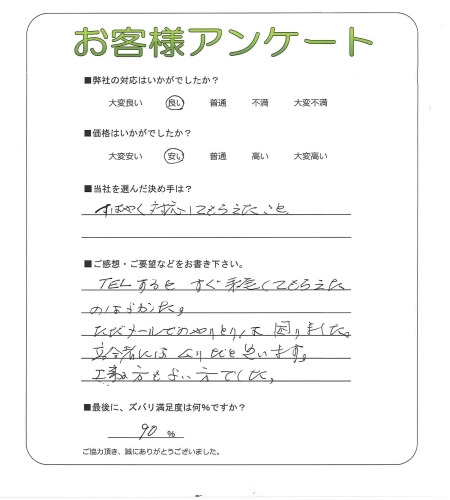 お客様アンケート
■弊社の対応はいかがでしたか？
大変良い 良い 普通 不満 大変不満
■価格はいかがでしたか？
大変安い 安い 普通 高い 大変高い
■当社を選んだ決め手は？
すばやく対応してもらえたこと
■ご感想・ご要望などをお書き下さい。
TELするとすぐ してもらえた
のはよかった。
ただメールでのやりとりは困りました。
と思います。
工事の方もよい方でした。
■最後に、ズバリ満足度は何%ですか？
90 %
ご協力頂き、誠にありがとうございました。